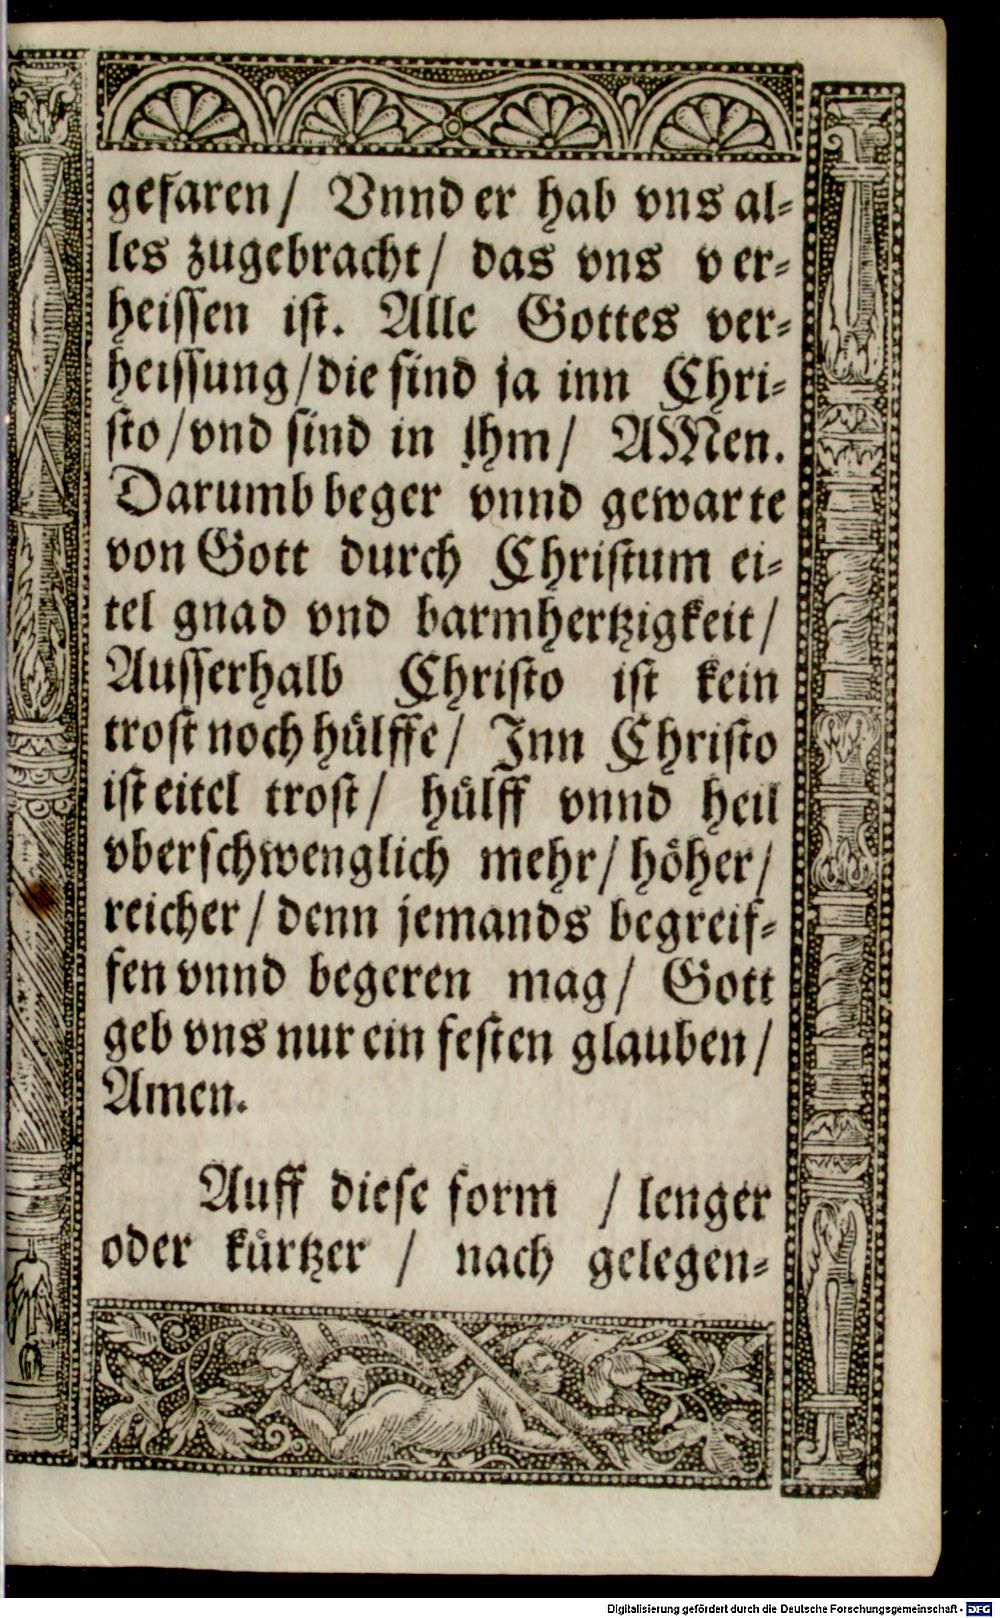 gefaren/ Vnnd er hab vns al⸗
les zugebracht/ das vns ver⸗
heissen ist. Alle Gottes ver⸗
heissung/die sind ja inn Chri⸗
sto/vnd sind in jhm/ AMen.
Darumb beger vnnd gewarte
von Gott durch Christum ei⸗
tel gnad vnd barmhertzigkeit/
Ausserhalb Christo ist kein
trost noch hülffe/ Jnn Christo
ist eitel trost/ hülff vnnd heil
vberschwenglich mehr/ höher/
reicher/ denn jemands begreif⸗
fen vnnd begeren mag/ Gott
geb vns nur ein festen glauben/
Amen.
Auff diese form / lenger
oder kürtzer / nach gelegen⸗
Digitalisierung gefördert durch die Deutsche Forschungsgemeinschaft - DFG